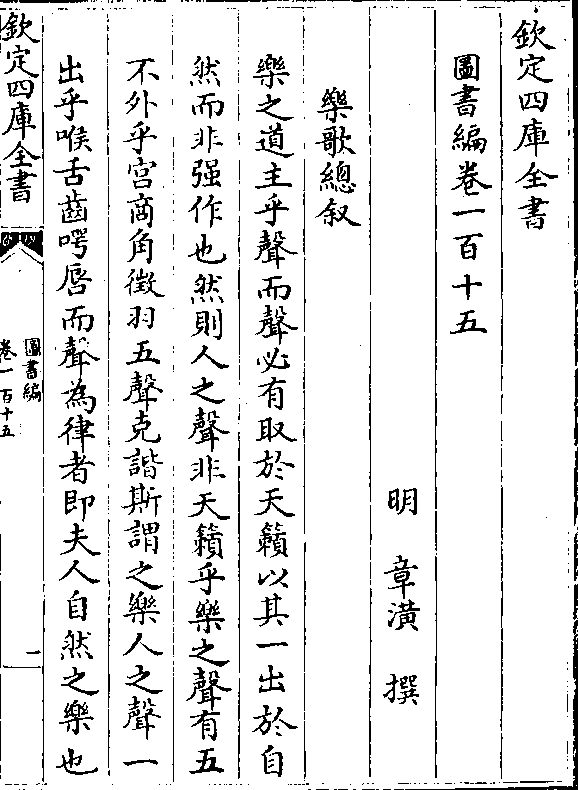 欽定四庫全書
圖書編卷一百十五
明 章潢 撰
樂歌總叙
樂之道主乎聲而聲必有取於天籟以其一出於自
然而非强作也然則人之聲非天籟乎樂之聲有五
不外乎宫商角徵羽五聲克諧斯謂之樂人之聲一
出乎喉舌齒咢唇而聲為律者即夫人自然之樂也
欽定四庫全書
圖書編
卷一百十五
一